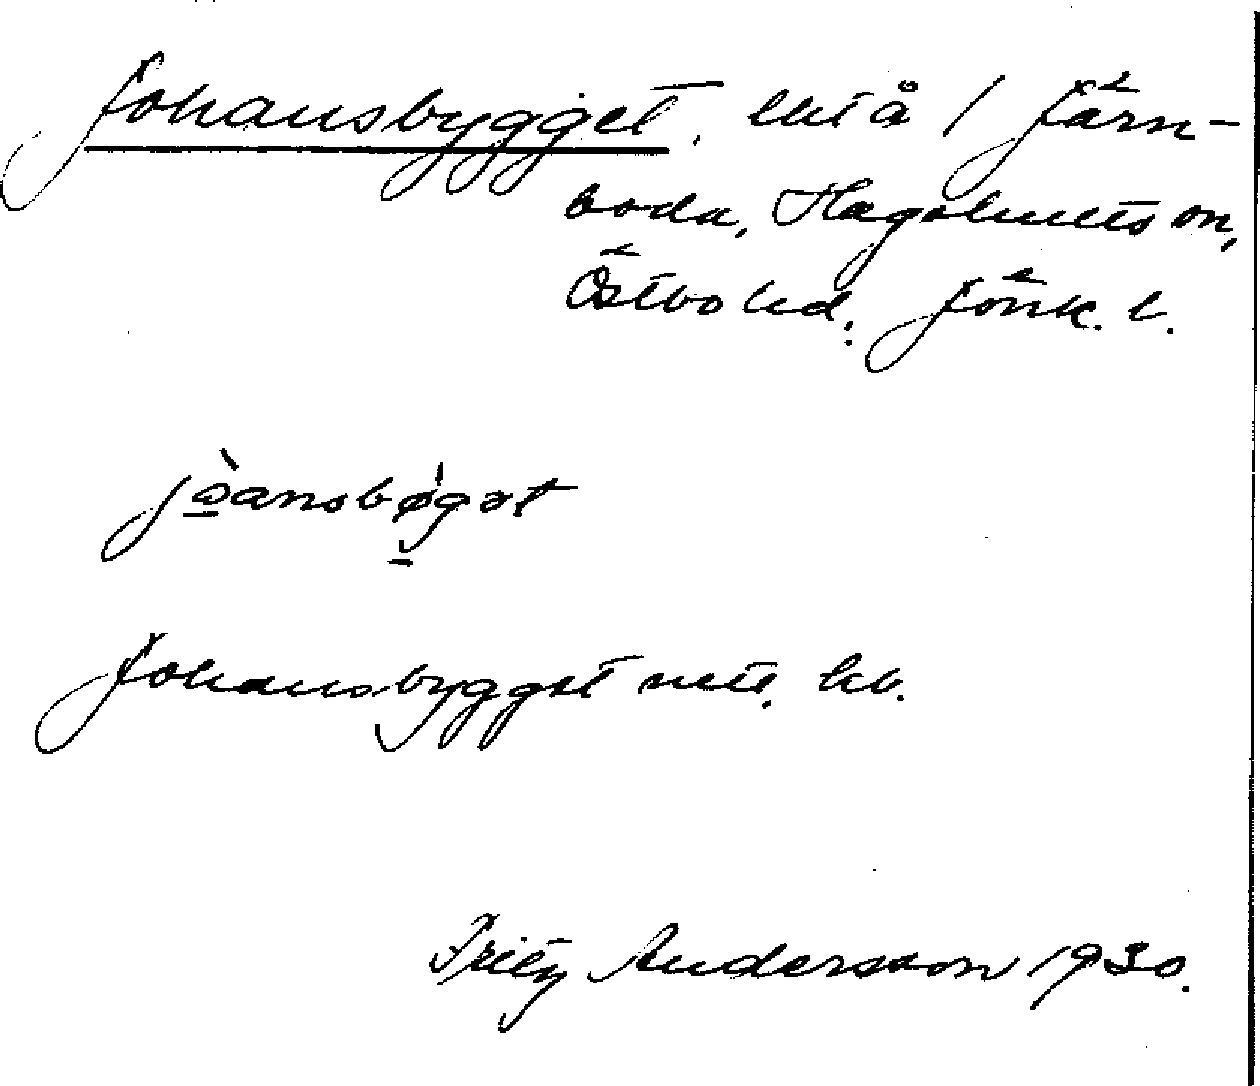 Johansbygget, lht å 1 Järn-
boda, Hagshults sn,
Östbo hd, Jönk. l.
jòansbǿgət
Johansbygget mtl. kb.
Fritz Andersson 1930.